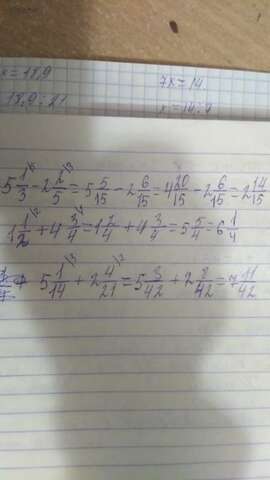 x = 18,9
7x = 14
18,9 : 21
x = 14 : 7
5 1/3 \5 - 2 2/5 \3 = 5 5/15 - 2 6/15 = 4 20/15 - 2 6/15 = 2 14/15
1 1/2 \2 + 4 3/4 = 1 2/4 + 4 3/4 = 5 5/4 = 6 1/4
5 1/14 \3 + 2 4/21 \2 = 5 3/42 + 2 8/42 = 7 11/42